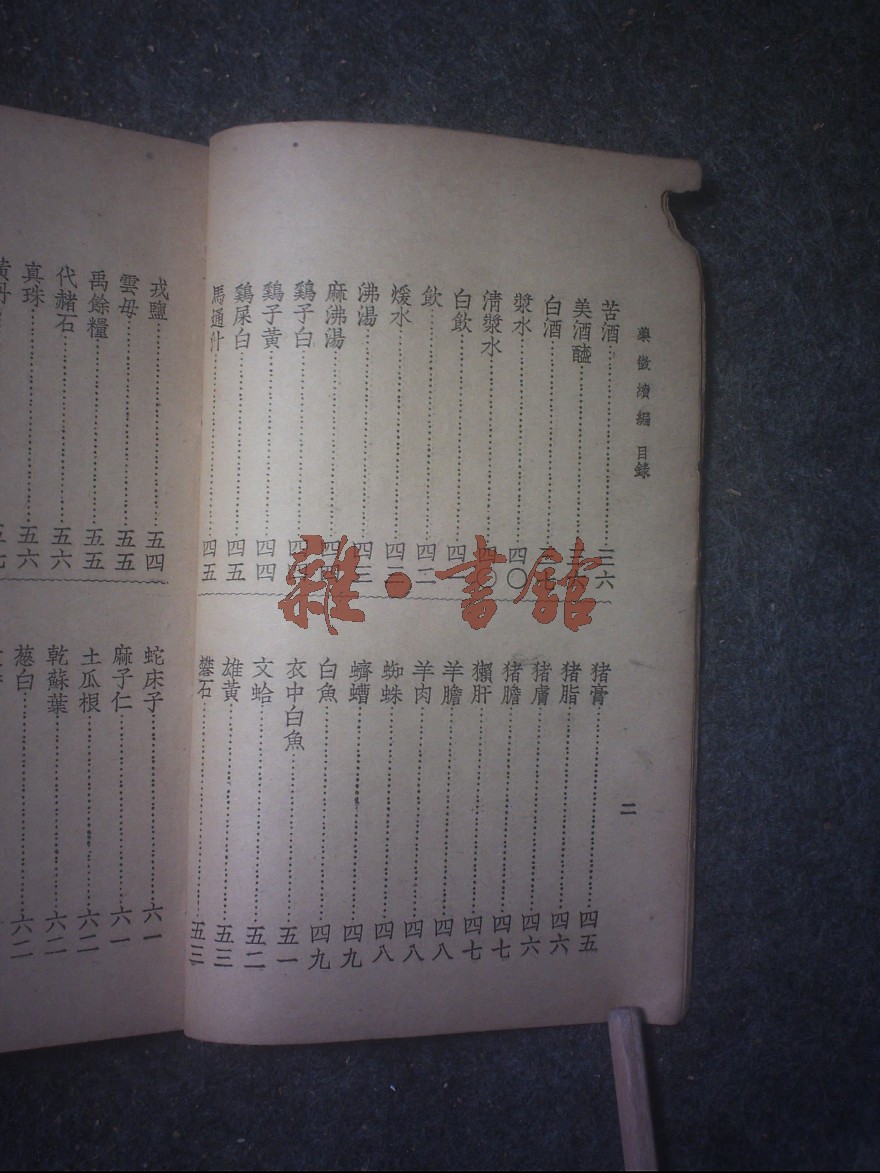 藥徵續編 目錄
二
苦酒 三六
美酒醯
白酒
漿水 四〇
清漿水 四〇
白飲 四一
飲 四二
煖水 四二
沸湯 四三
麻沸湯
鷄子白
鷄子黃 四四
鷄屎白 四五
馬通汁 四五
猪膏 四五
猪脂 四六
猪膚 四六
猪膽 四七
獺肝 四七
羊膽 四八
羊肉 四八
蜘蛛 四八
蠐螬 四九
白魚 四九
衣中白魚 五一
文蛤 五二
雄黃 五三
礬石 五三
戎鹽 五四
雲母 五五
禹餘糧 五五
代赭石 五六
真珠 五六
黃丹 五七
蛇床子 六一
麻子仁 六一
土瓜根 六二
乾蘇葉 六二
葱白 六二
雜·書館